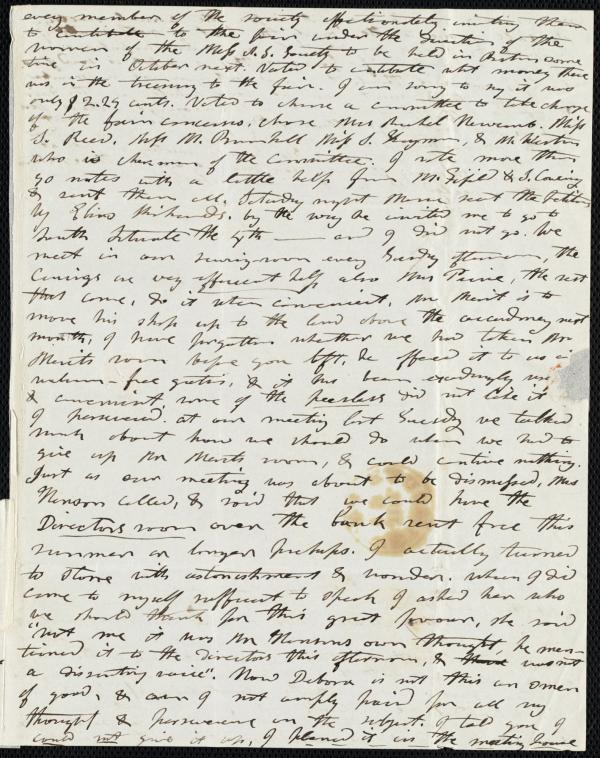 every member of the society affectionately inviting them
to contribute to the fair under the direction of the
women of the Mass A. S. Society to be held in Boston some
time in October next. Voted to contribute what money there
was in the treasury to the fair. I am sorry to say it was
only $ 2.29 cents. Voted to choose a committee to take charge
of the fair concerns, chose Mrs Rachel Newcomb, Miss
S. Reed, Miss M. Miss S. & M. Weston
who is chairman of the Committee. I wrote more than
90 notes with a little help from M. & S. Cowing
& sent them all. Saturday night Mama sent the petition
by Elias Richards. by the way he invited me to go to
South Scituate the 4th — and I did not go. We
meet in our sewing-room every Tuesday afternoon, the
Cowings are very efficient help also Mrs the rest
that come, do it when convenient, Mr Marit is to
move his shop up to the land above the accademy next
month, I have forgotten whether we had taken Mr
Marits room before you left, he offered it to us in
welcome - free gratis, & it has been exceedingly nice
& convenient some of the peerless did not like it
I persevered. at our meeting last Tuesday we talked
much about how we should do when we had to
give up Mr Marits room, & could contrive nothing.
Just as our meeting was about to be dismissed, Mrs
Monson called, & said that we could have the
Directors room over the bank rent free this
summer or longer perhaps. I actually turned
to stone with astonishment & wonder. when I did
come to myself sufficient to speak I asked her who
we should thank for this great favour, she said
"not me it was Mr Monsons own thought, he men-
tioned it to the directors this afternoon, & there was not
a dissenting voice". Now Debora is not this an omen
of good, & am I not amply paid for all my
thought & perseverance on the subject. I told you I
could not give it up, I planed it in the meeting house